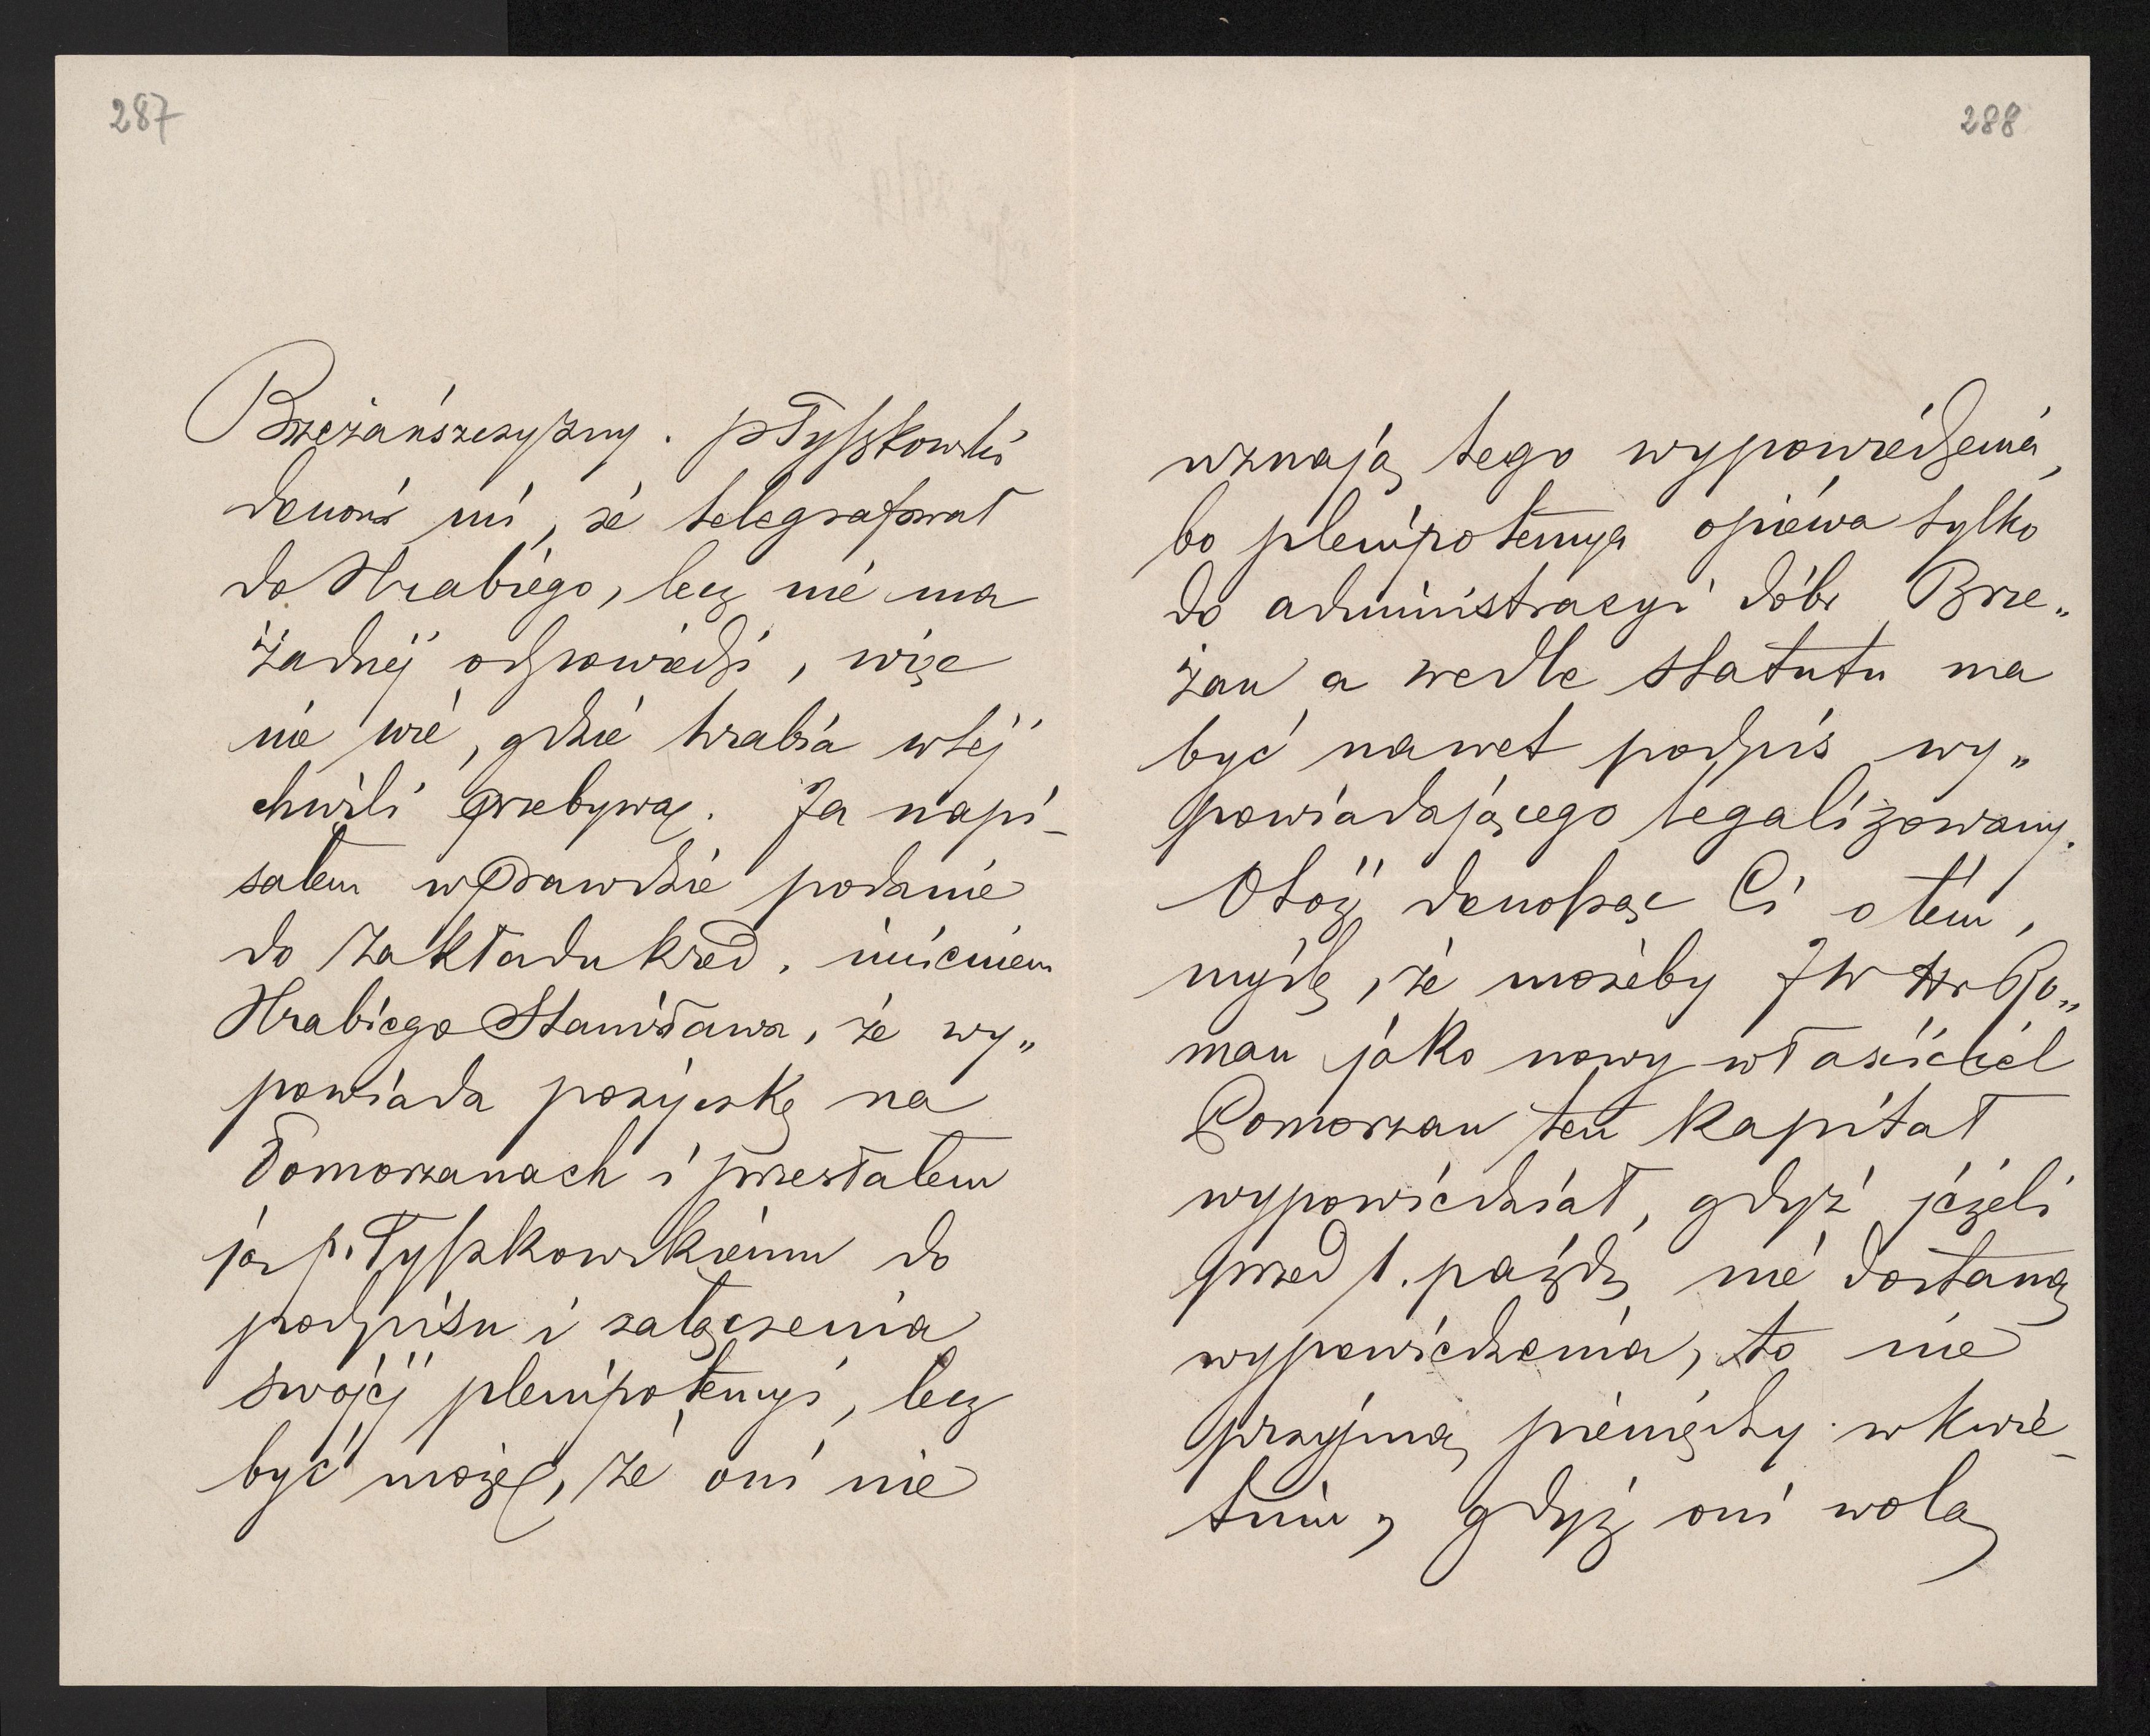 287
Brzeżańszczyzny. p Tyszkowski
donosi mi, że telegrafował
do Hrabiego, lecz nie ma
żadnéj odpowiedzi, więc
nie wie, gdzie hrabia w téj
chwili przebywa. Ja napi-
sałem wprawdzie podanie
do Zakładu kred. imieniem
Hrabiego Stanisława, że wy„
powiada pożyczkę na
Pomorzanach i przesłałem
ją p. Tyszkowskiemu do
podpisu i załączenia
swojéj plenipotencyi, lecz
być może, że oni nie
288
uznają tego wypowiedzenia,
bo plenipotencya opiewa tylko
do administracyi dóbr Brze„
żan a wedle statutu ma
być nawet podpis wy„
powiadającego legalizowany.
Otóż donosząc Ci o tém,
myślę, że możeby JW Hr Ro„
man jako nowy właściciel
Pomorzan ten kapitał
wypowiedział, gdyż jeżeli
przed 1. paźdz nie dostaną
wypowiedzenia, to nie
przyjmą pieniędzy w kwie-
tniu, gdyż oni wolą